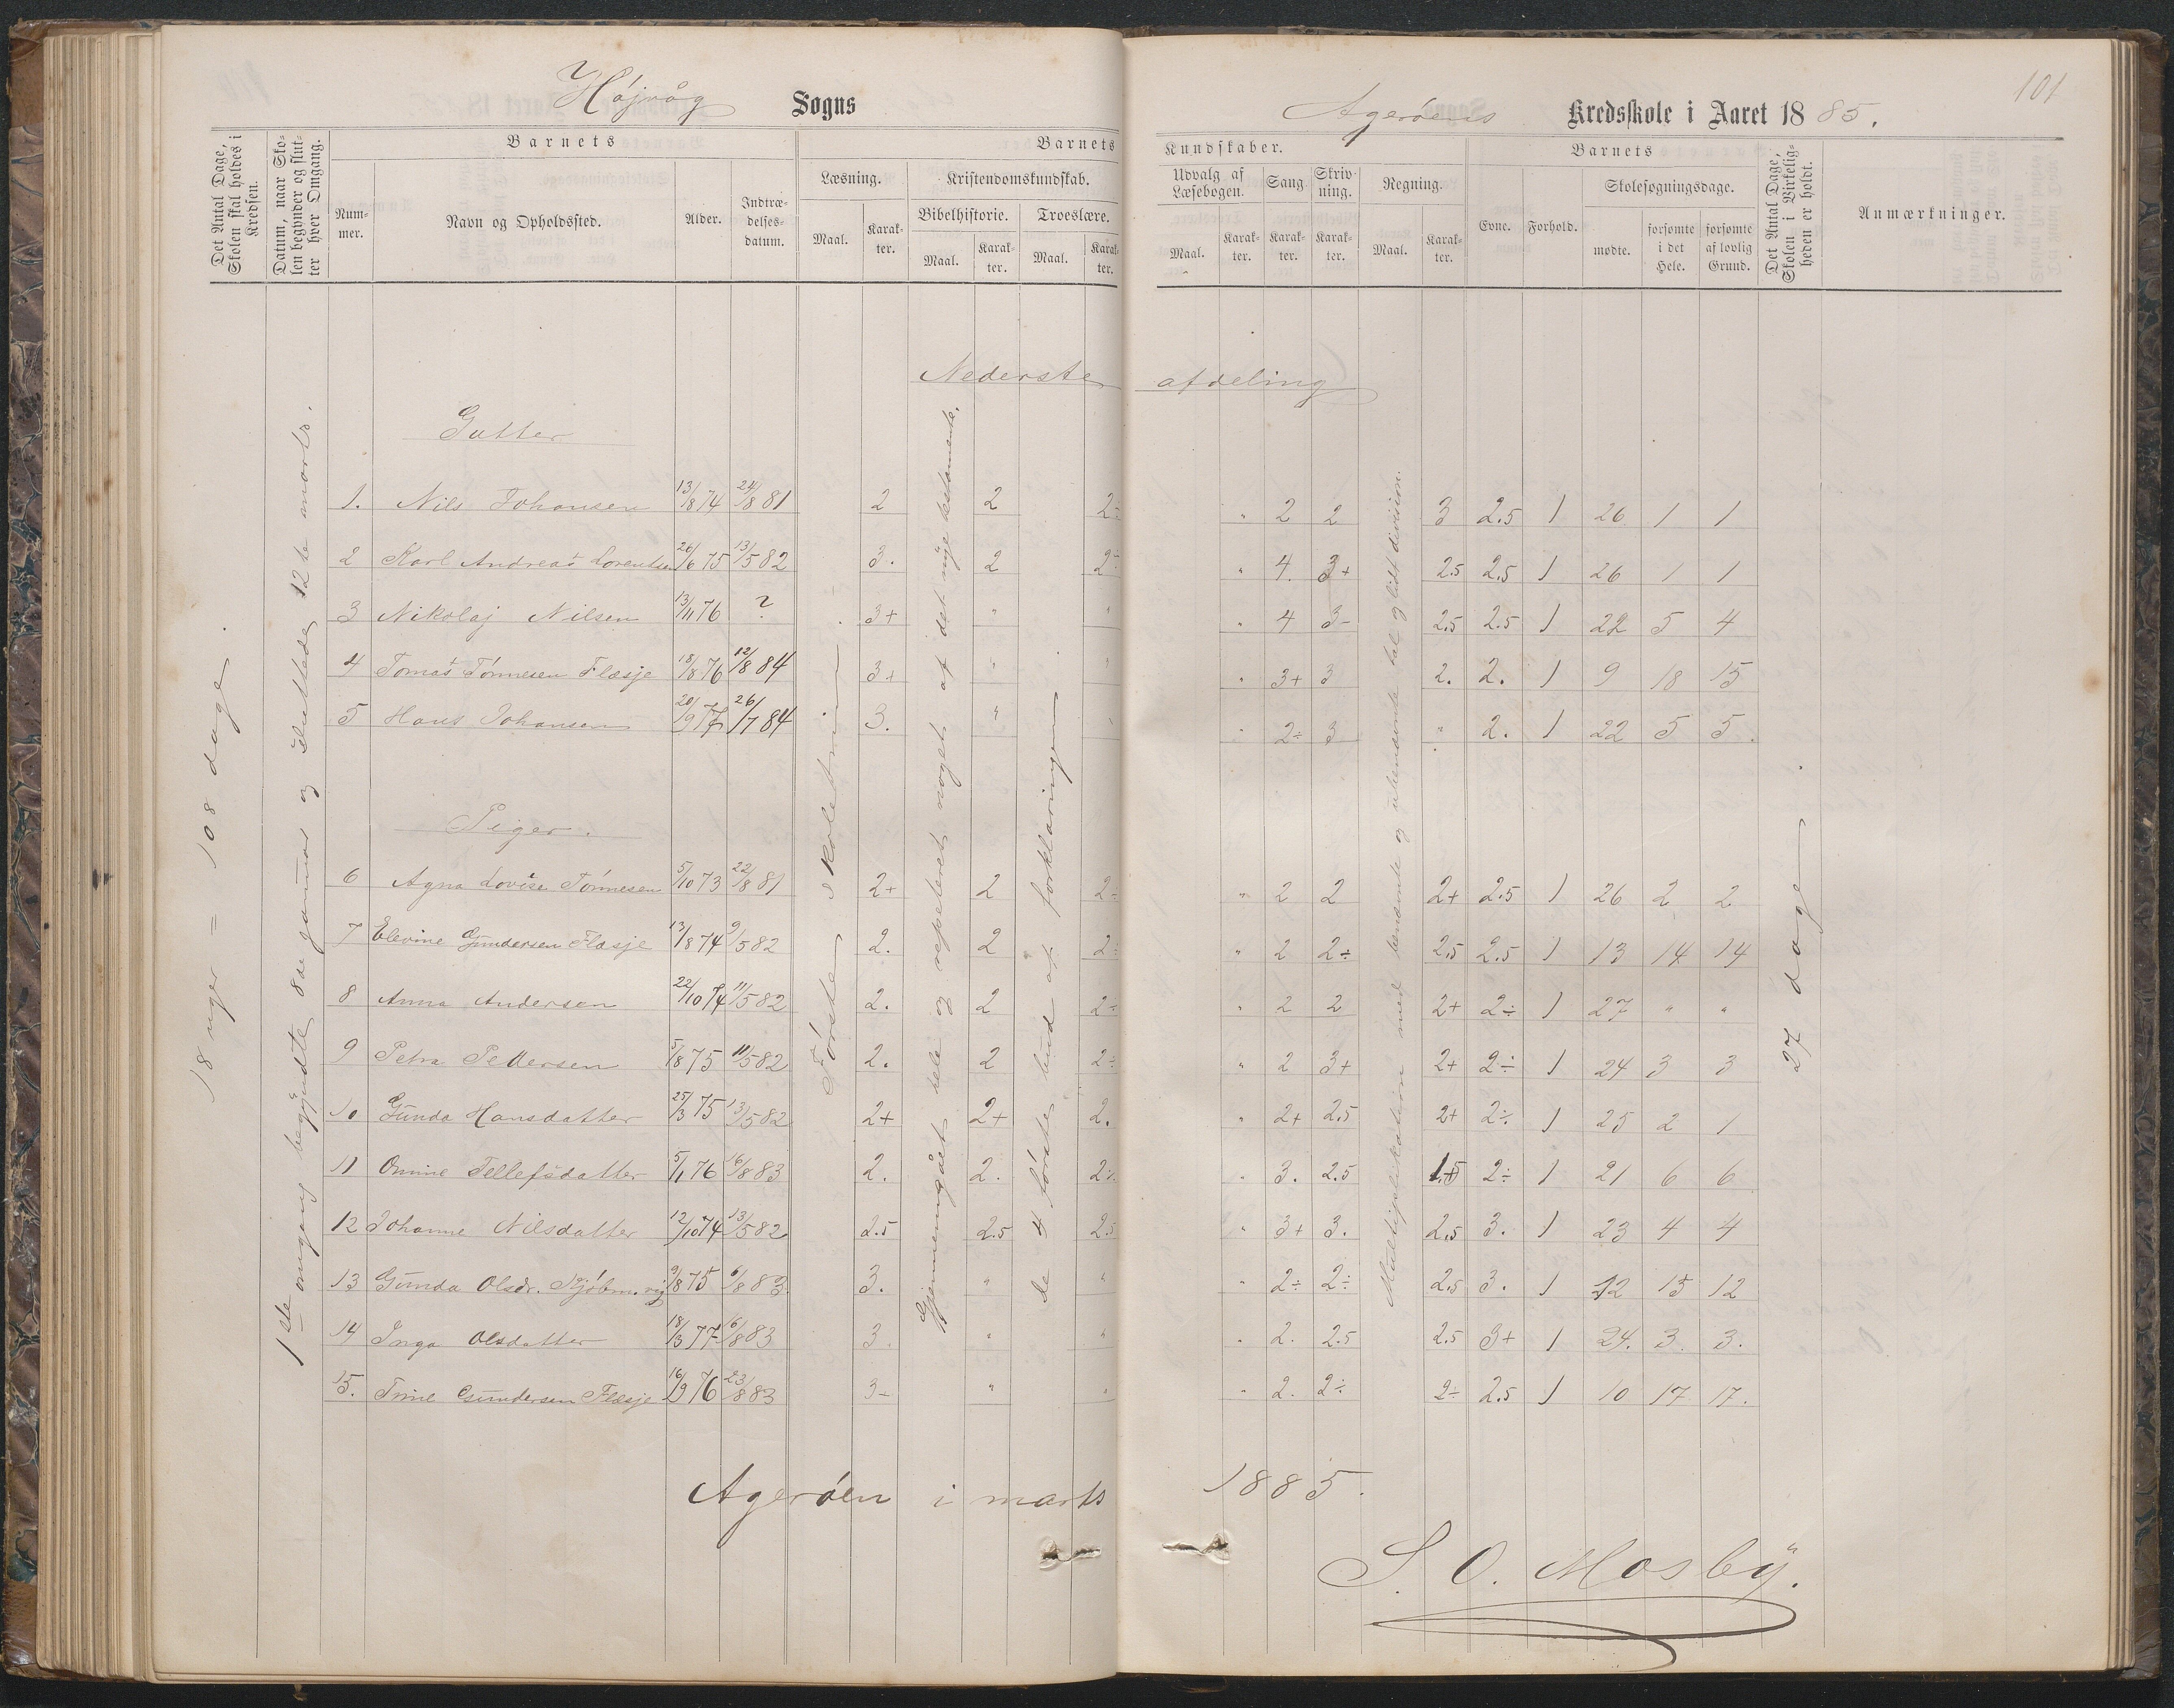 101
Højvåg Sogns Agerøens Kredsskole i Aaret 1885.
Det Antal Dage, Skolen skal holdes i Kredsen.
Datum, naar Skolen begynder og slutter hver Omgang.
Barnets
Nummer.
Navn og Opholdssted.
Alder.
Indtrædelsesdatum.
Barnets Kundskaber.
Læsning.
Maal.
Karakter.
Kristendomskundskab.
Bibelhistorie.
Maal.
Karakter.
Troeslære.
Maal.
Karakter.
Udvalg af Læsebogen.
Maal.
Karakter.
Sang
Karakter.
Skrivning.
Karakter.
Regning.
Maal.
Karakter.
Barnets
Evne.
Forhold.
Skolesøgningsdage.
mødte.
forsømte i det Hele.
forsømte af lovlig Grund.
Det Antal Dage, Skolen i Virkeligheden er holdt.
Anmærkninger.
Nederste afdeling
18 uger = 108 dage.
1ste omgang begyndte 8de januar og sluttede 12te marts.
Første skoletrin
Gjennemgået hele og repeteret noget af det nye testamente.
De 4 første bud af forklaringen.
Multiplikation med benævnte og ubenævnte tal og lidt division.
27 dage.
Gutter
1. Nils Johansen 13/8 74 24/8 81 2 2 2÷ " 2 2 3 2.5 1 26 1 1
2 Karl Andreas Lorentsen 26/6 75 13/5 82 3. 2 2÷ " 4. 3+ 2.5 2.5 1 26 1 1
3 Nikolaj Nilsen 13/11 76 ? 3+ " " " 4 3- 2.5 2.5 1 22 5 4
4 Tomas Tønnesen Flæsje 18/8 76 12/8 84 3+ " " " 3+ 3 2. 2. 1 9 18 15
5 Hans Johansen 20/9 77 26/7 84 3. " " " 2÷ 3 " 2. 1 22 5 5.
Piger.
6 Agna Lovise Tønnesen 5/10 73 22/8 81 2+ 2 2÷ " 2 2 2+ 2.5 1 26 2 2
7 Elevine Gundersen Flæsje 13/8 74 9/5 82 2. 2 2÷ " 2 2÷ 2.5 2.5 1 13 14 14
8 Anna Andersen 22/10 74 11/5 82 2. 2 2÷ " 2 2 2+ 2÷ 1 27 " "
9 Petra Pettersen 5/8 75 11/5 82 2. 2 2÷ " 2 3+ 2+ 2÷ 1 24 3 3
10 Gunda Hansdatter 25/3 75 13/5 82 2+ 2+ 2. " 2+ 2.5 2+ 2÷ 1 25 2 1
11 Omine Tellefsdatter 5/1 76 16/8 83 2. 2. 2÷ " 3. 2.5 1.5 2÷ 1 21 6 6
12 Johanne Nilsdatter 12/10 74 13/5 82 2.5 2.5 2.5 " 3+ 3. 2.5 3. 1 23 4 4
13 Gunda Olsdr. 9/8 75 6/8 83. 3. " " " 2÷ 2÷ 2.5 3. 1 12 15 12
14 Inga Olsdatter 18/3 77 16/8 83 3. " " " 2. 2.5 2.5 3+ 1 24. 3. 3.
15. Trine Gundersen Flæsje 16/9 76 23/8 83 3- " " " 2. 2÷ 2÷ 2.5 1 10 17 17.
Agerøen i marts 1885.
S. O. Mosbÿ.